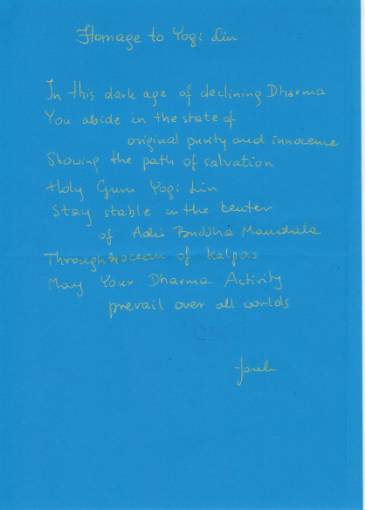 Homage to Yogi Lin
In this dark age of declining Dharma
You abide in the state of
original purity and innocence
Showing the path of salvation
Holy Guru Yogi Lin
Stay stable in the center
of Adi Buddha Mandala
Through ocean of kalpas
May Your Dharma Activity
prevail over all worlds